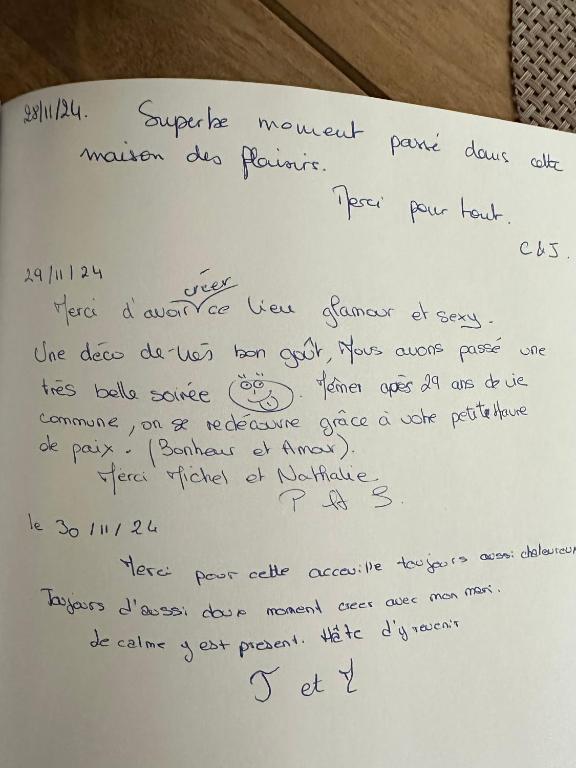 28/11/24. Superbe moment passé dans cette
maison des plaisirs.
Merci pour tout.
C & J.
29/11/24
créer
Merci d'avoir ce lieu glamour et sexy.
Une déco de très bon goût, Nous avons passé une
très belle soirée. Même après 29 ans de vie
commune, on se redécouvre grâce à votre petit Havre
de paix. (Bonheur et Amour).
Merci Michel et Nathalie
P et S.
le 30/11/24
Merci pour cette acceuille toujours aussi chaleureux
Toujours d'aussi doux moment creer avec mon mari.
de calme y est present. Hâte d'y revenir
J et